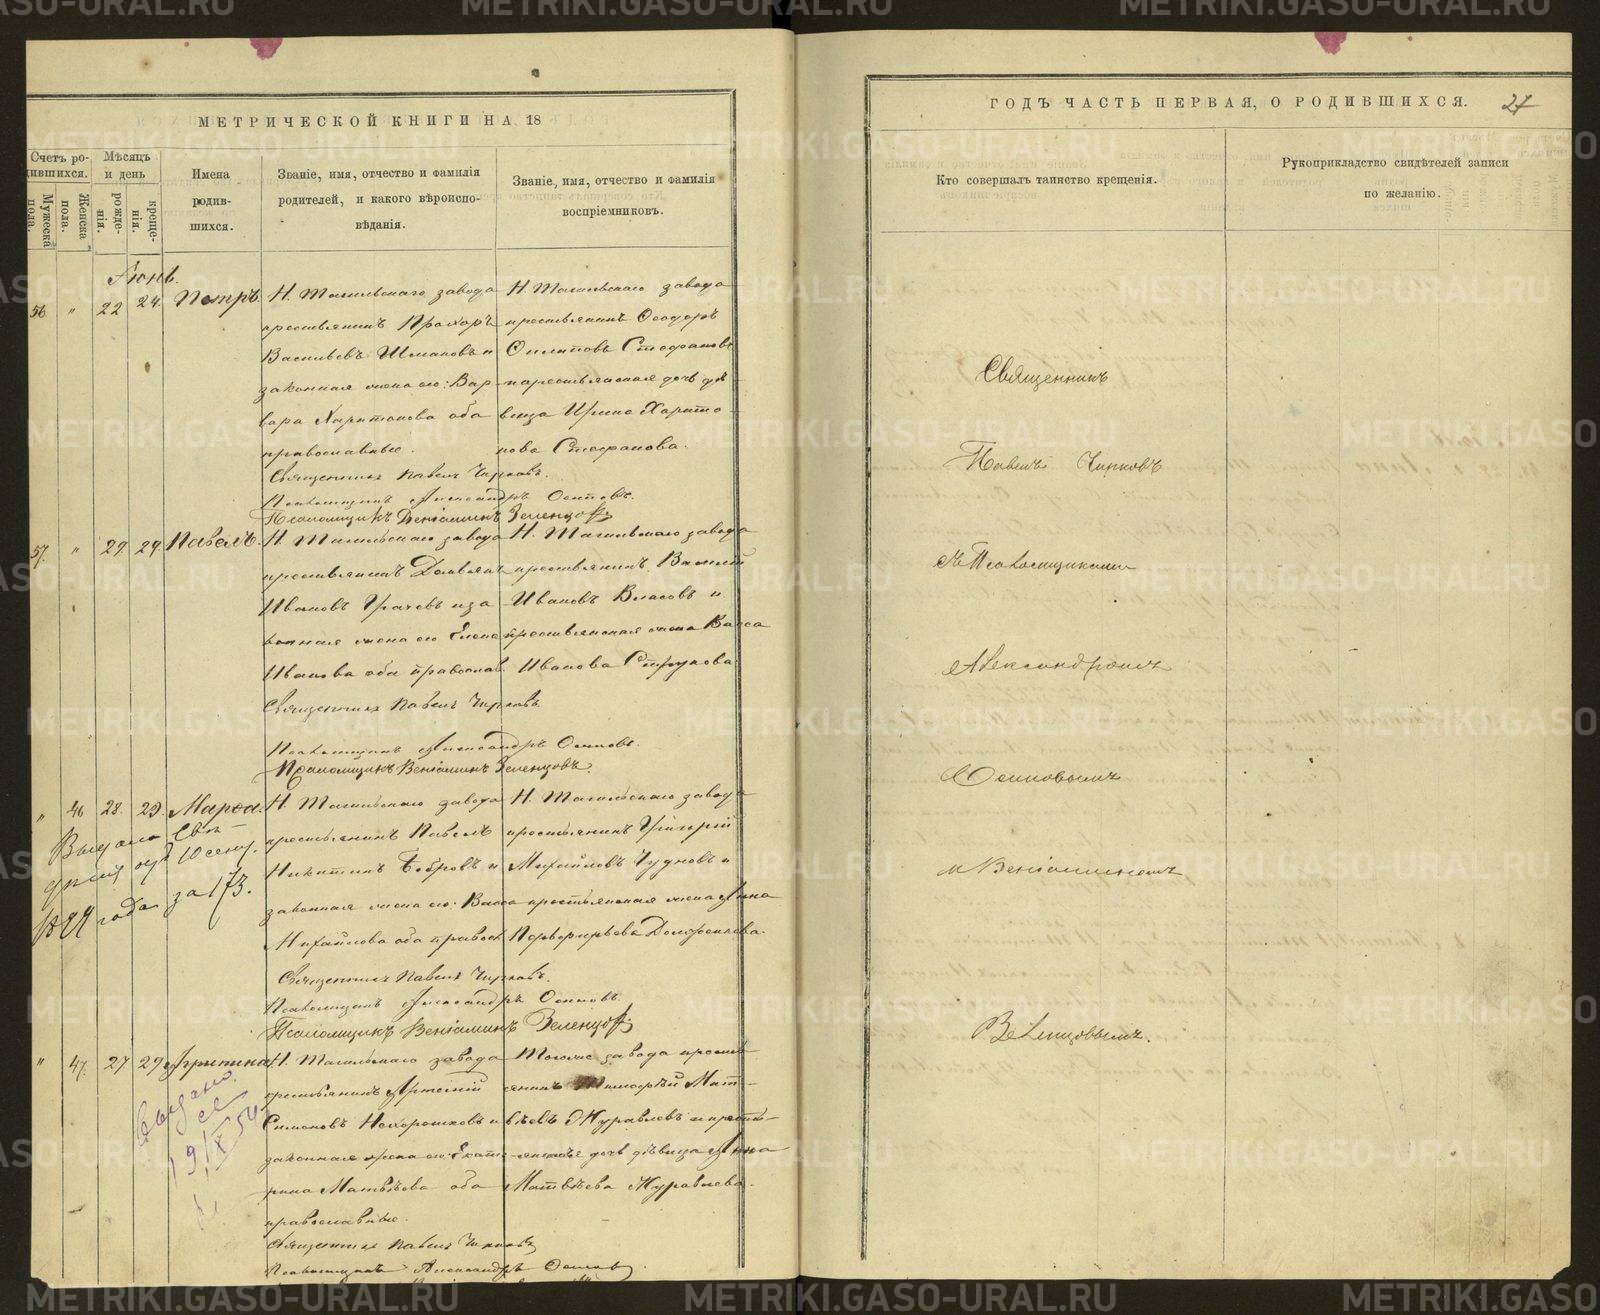 МЕТРИЧЕСКОЙ КНИГИ НА 18
ГОДЪ ЧАСТЬ ПЕРВАЯ, О РОДИВШИХСЯ.
27
Счетъ ро-
дившихся.
Мужеска
пола.
Женска
пола.
Мѣсяцъ
и день
рожде-
нія.
креще-
нія.
Имена
родив-
шихся.
Званіе, имя, отчество и фамилія
родителей, и какого вѣроиспо-
вѣданія.
Званіе, имя, отчество и фамилія
воспріемниковъ.
Кто совершалъ таинство крещенія.
Рукоприкладство свидѣтелей записи
по желанію.
Іюнь.
56 " 22 24. Петръ
Н. Тагильскаго завода
крестьянинъ Прохоръ
Васильевъ Шмаковъ и
законная жена его: Вар-
вара Харитонова оба
православные.
Н. Тагильскаго завода
крестьянинъ Ѳеодоръ
Филиповъ Стефановъ
и крестьянская дочь дѣ-
вица Ирина Харито-
нова Стефанова.
Священникъ Павелъ Чирковъ.
Псаломщикъ Александръ Осиповъ.
Псаломщикъ Веніаминъ Зеленцовъ
57. " 29 29 Павелъ.
Н. Тагильскаго завода
крестьянинъ Демьянъ
Ивановъ Грачевъ и за
конная жена его Елена
Иванова оба православ.
Н. Тагильскаго завода
крестьянинъ Василій
Ивановъ Власовъ и
крестьянская жена Васса
Иванова
Священникъ Павелъ Чирковъ
Псаломщикъ Александръ Осиповъ.
Псаломщикъ Веніаминъ Зеленцовъ.
" 46 28. 29. Марѳа.
Выдано
10 сент.
года за 173.
Н. Тагильскаго завода
крестьянинъ Павелъ
Никитинъ Бобровъ и
законная жена его: Васса
Михайлова оба правосл
Н. Тагильскаго завода
крестьянинъ Григорій
Михайловъ Чудновъ и
крестьянская жена Анна
Священникъ Павелъ Чирковъ.
Псаломщикъ Александръ Осиповъ
Псаломщикъ Веніаминъ Зеленцовъ
" 47. 27 29 Агрипина
Выдано
19/X 54
Н. Тагильскаго завода
крестьянинъ Арсеній
Симоновъ Нехорошковъ и
законная жена его: Екате-
рина Матвѣева оба
православные.
Тогоже завода кресть
янинъ Тимоѳѣй Мат-
вѣевъ Журавлевъ и кресть-
янская дочь дѣвица Анна
Матвѣева Журавлева.
Священникъ Павелъ Чирковъ
Псаломщикъ Александръ Осиповъ.
Священникъ
Павелъ Чирковъ
съ Псаломщиками
Александромъ
Осиповымъ
и Веніаминомъ
Зеленцовымъ.
METRIKI.GASO-URAL.RU